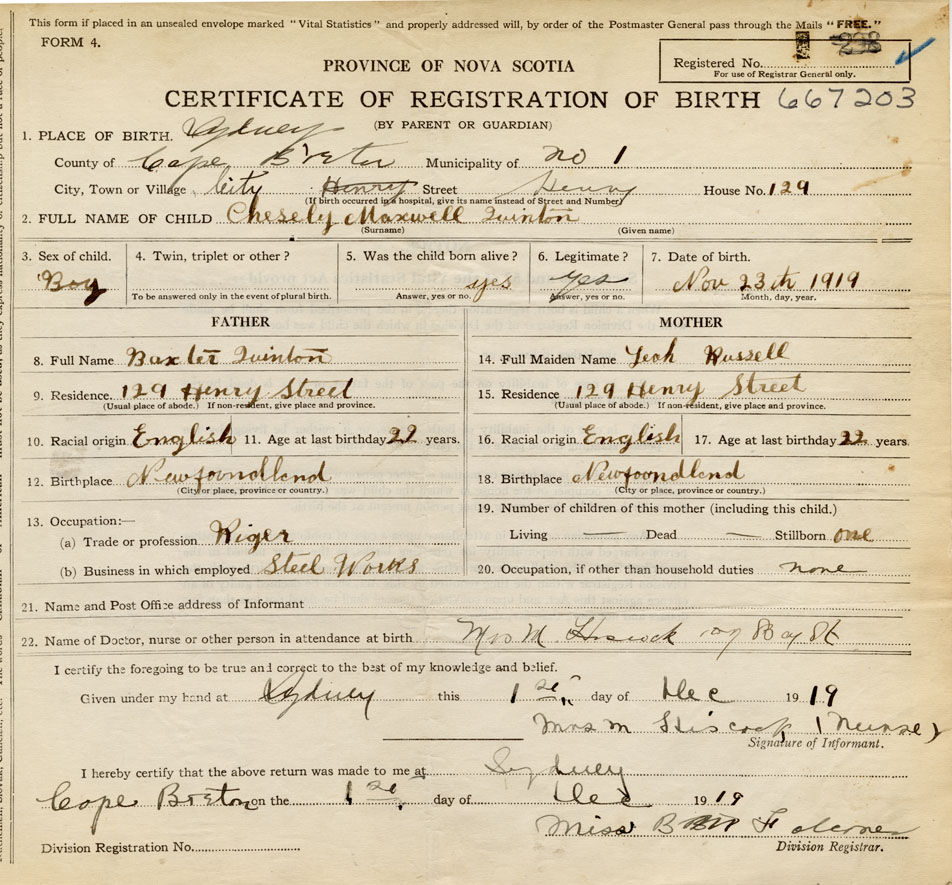 This form if placed in an unsealed envelope marked "Vital Statistics" and properly addressed will, by order of the Postmaster General pass through the Mails "FREE."
FORM 4.
Registered No.
For use of Registrar General only.
PROVINCE OF NOVA SCOTIA
CERTIFICATE OF REGISTRATION OF BIRTH 667203
(BY PARENT OR GUARDIAN)
1. PLACE OF BIRTH. Sydney
County of Cape Breton Municipality of no 1
City, Town or Village City Henry Street Henry House No. 129
(If birth occurred in a hospital, give its name instead of Street and Number)
2. FULL NAME OF CHILD Chesely Maxwell Quinton
(Surname) (Given name)
3. Sex of child. 4. Twin, triplet or other? 5. Was the child born alive? 6. Legitimate? 7. Date of birth.
Boy yes yes Nov 23th 1919
To be answered only in the event of plural birth. Answer, yes or no. Answer, yes or no. Month, day, year.
FATHER MOTHER
8. Full Name Baxter Quinton 14. Full Maiden Name Leah Russell
9. Residence. 129 Henry Street 15. Residence 129 Henry Street
(Usual place of abode.) If non-resident, give place and province. (Usual place of abode.) If non-resident, give place and province.
10. Racial origin English 11. Age at last birthday 22 years. 16. Racial origin English 17. Age at last birthday 22 years.
12. Birthplace Newfoundlend 18. Birthplace Newfoundlend
(City or place, province or country.) (City or place, province or country.)
13. Occupation:— 19. Number of children of this mother (including this child.)
(a) Trade or profession Riger Living — Dead — Stillborn one
(b) Business in which employed Steel Works 20. Occupation, if other than household duties none
21. Name and Post Office address of Informant
22. Name of Doctor, nurse or other person in attendance at birth Mrs M. Hiscock
I certify the foregoing to be true and correct to the best of my knowledge and belief.
Given under my hand at Sydney this 1 day of Dec 1919
Mrs M Hiscock (Nurse)
Signature of Informant.
I hereby certify that the above return was made to me at Sydney
Cape Breton on the 1 day of Dec 1919
Miss B
Division Registrar.
Division Registration No.